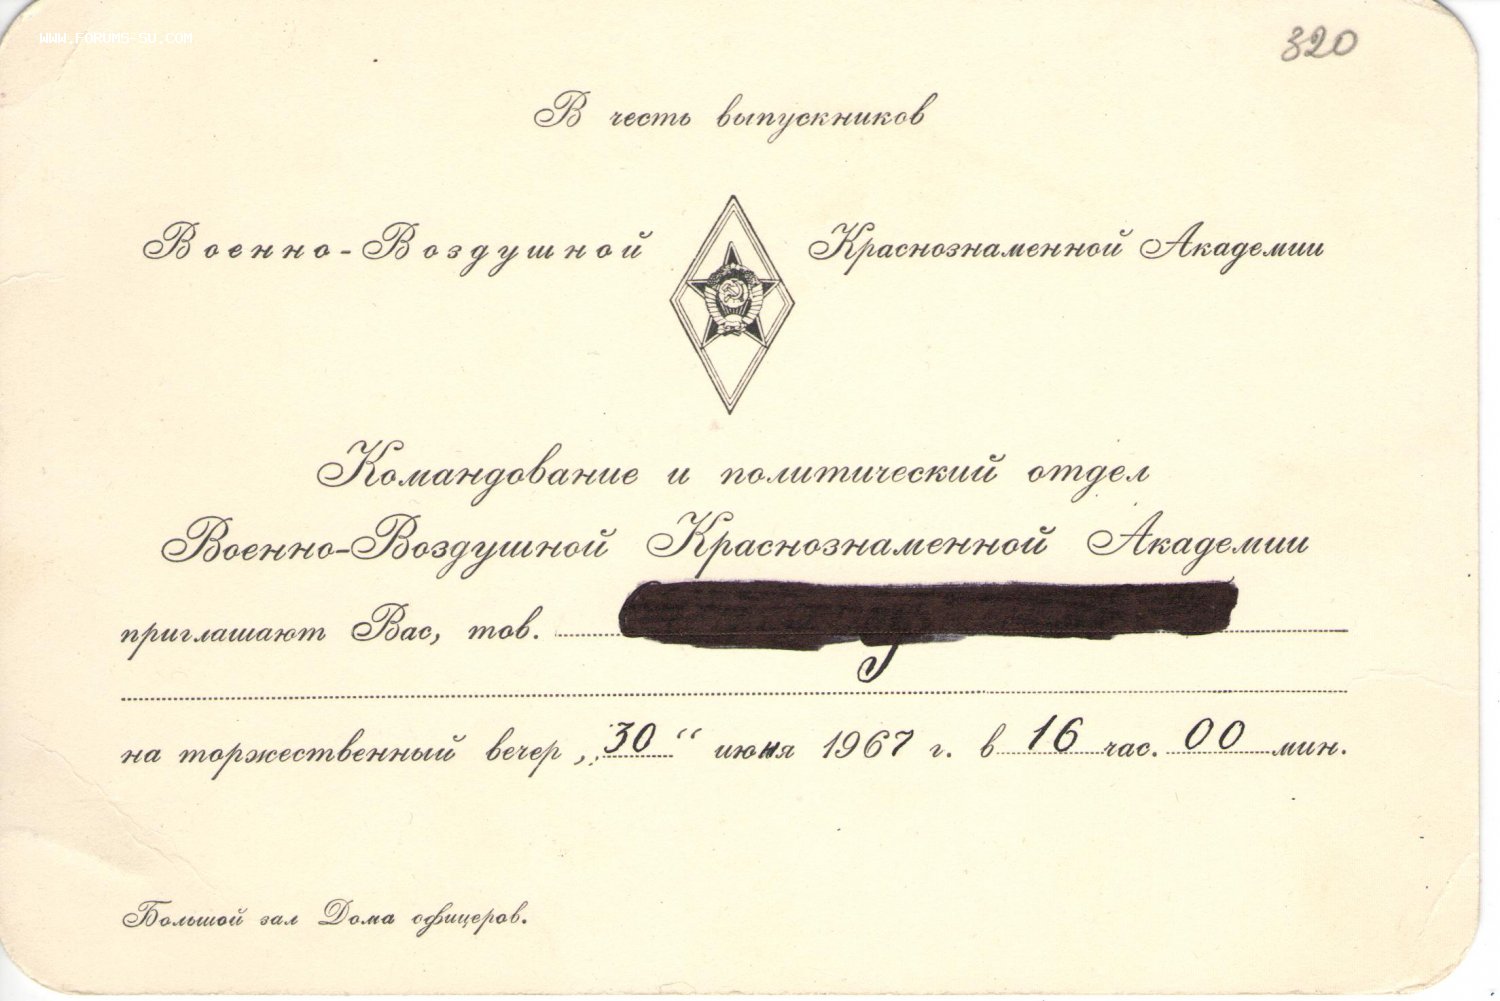 WWW.FORUMS-SU.COM
320
В честь выпускников
Военно-Воздушной Краснознаменной Академии
Командование и политический отдел
Военно-Воздушной Краснознаменной Академии
приглашают Вас, тов.
на торжественный вечер „30“ июня 1967 г. в 16 час. 00 мин.
Большой зал Дома офицеров.